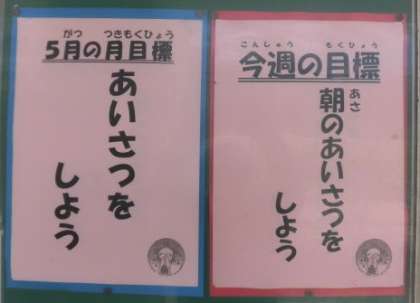 がつ つきもくひょう
5月の月目標
あいさつを
しよう
こんしゅう もくひょう
今週の目標
あさ
朝のあいさつを
しよう